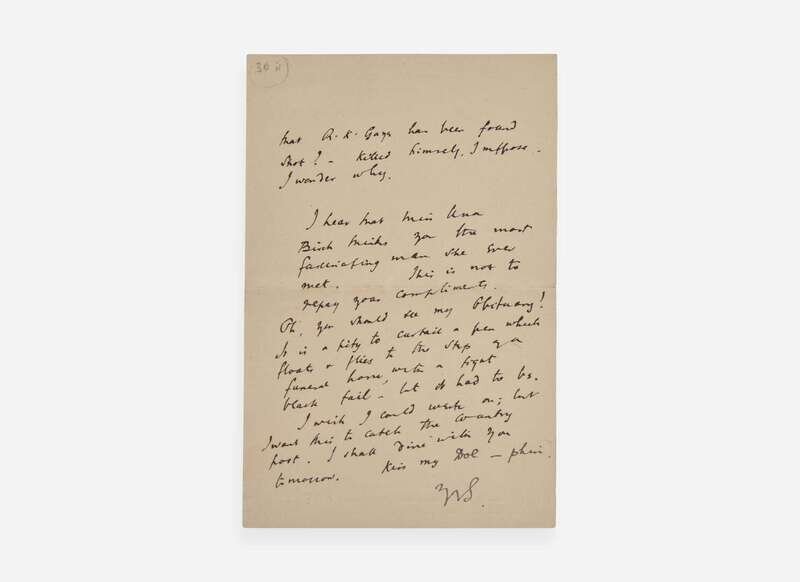 30 ii
that R. K. Gaye has been found
shot? - Killed himself, I suppose.
I wonder why.
I hear that Miss Una
Birch thinks you the most
fascinating man she ever
met. This is not to
repay your compliments.
Oh, you should see my Obituary!
it is a pity to curtail a pen which
floats & flies to the step of a
funeral horse, with a tight
black tail - but it had to be.
I wish I could write on; but
I want this to catch the country
post. I shall dine with you
tomorrow. Kiss my Dol - phin.
VS.